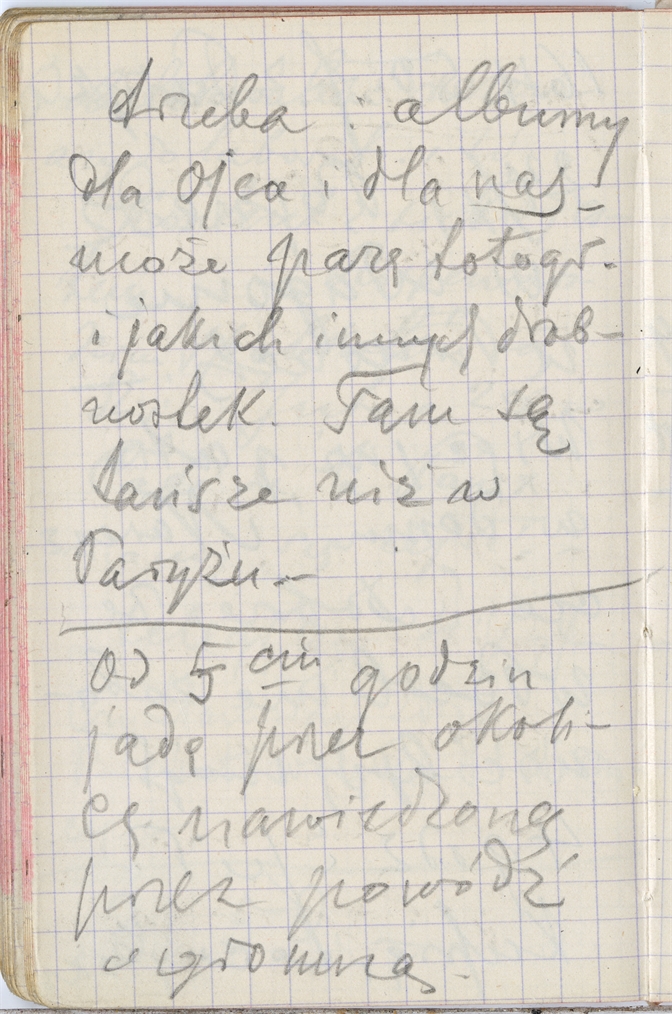 trzeba : albumy
dla Ojca i dla nas –
może parę fotogr.
i jakich innych drob-
nostek. Tam są
tańsze niż w
Paryżu –
Od 5 ciu godzin
jadę przez okoli-
cę nawiedzoną
przez powódź
ogromną.